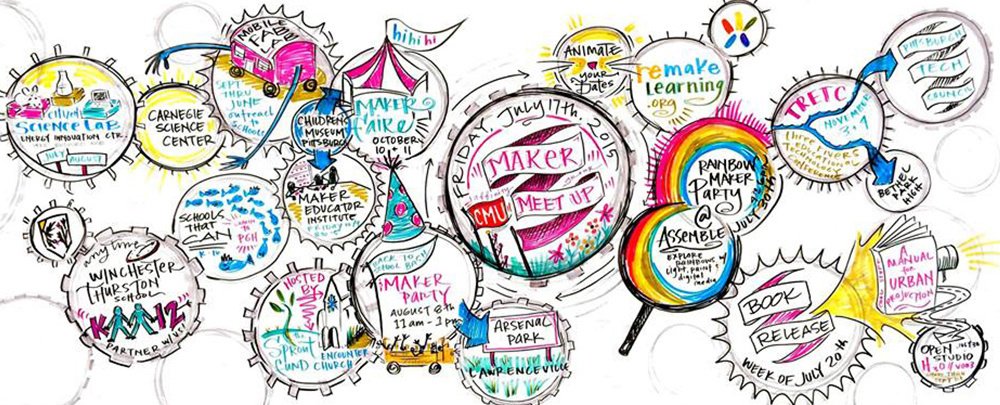 Citizen
SCIENCE LAB
ENERGY INNOVATION CTR.
JULY
AUGUST
CARNEGIE
SCIENCE
CENTER
MOBILE
LAB
SEPT
THRU
JUNE
outreach
SCHOOLS
CHILDRENS
MUSEUM
PITTSBURGH
hi hi hi
MAKER
Faire
OCTOBER
10 + 11
MAKER
EDUCATOR
INSTITUTE
SCHOOLS
THAT
CAN
PGH
WINCHESTER
THURSTON
SCHOOL
"K-12"
PARTNER W/
HOSTED
BY
the
Sprout
Fund
ENCOUNTER
CHURCH
BACK TO
SCHOOL BASH
MAKER
PARTY
AUGUST 8th
11 am - 3 pm
ARSENAL
PARK
LAWRENCEVILLE
FRIDAY, JULY 17th, 2015
MAKER
affinity
MEET UP
CMU
ANIMATE
your
Dates
remake
Learning
.org
RAINBOW
MAKER
PARTY
@
ASSEMBLE
EXPLORE
RAINBOWS w/
light, paint +
digital
media
TRETC
NOVEMBER
3 + 4
three rivers
educational
Technology
Conference
PITTSBURGH
TECH
COUNCIL
BETHEL
PARK
HIGH
BOOK
RELEASE
WEEK OF JULY 20th
A
MANUAL
for
URBAN
PROJECTION
OPEN
STUDIO